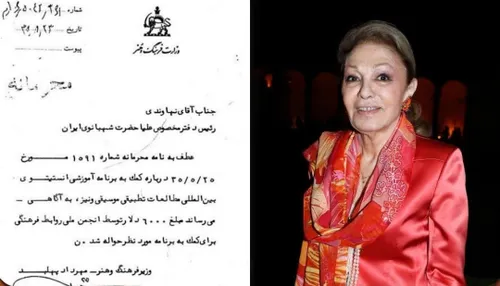 شماره
تاریخ
پیوست
وزارت فرهنگ و هنر
محرمانه
جناب آقای نهاوندی
رئیس دفتر مخصوص علیا حضرت شهبانوی ایران
عطف به نامه محرمانه شماره ۱۵۹۱ مورخ
۳۵/۵/۲۵ درباره کمک به برنامه آموزشی انستیتوی
بین المللی مطالعات تطبیقی موسیقی ونیز، به آگاهی
می رساند مبلغ ۶۰۰۰ دلار توسط انجمن ملی روابط فرهنگی
برای کمک به برنامه مورد نظر حواله شد. ن
وزیر فرهنگ و هنر - مهرداد پهلبد